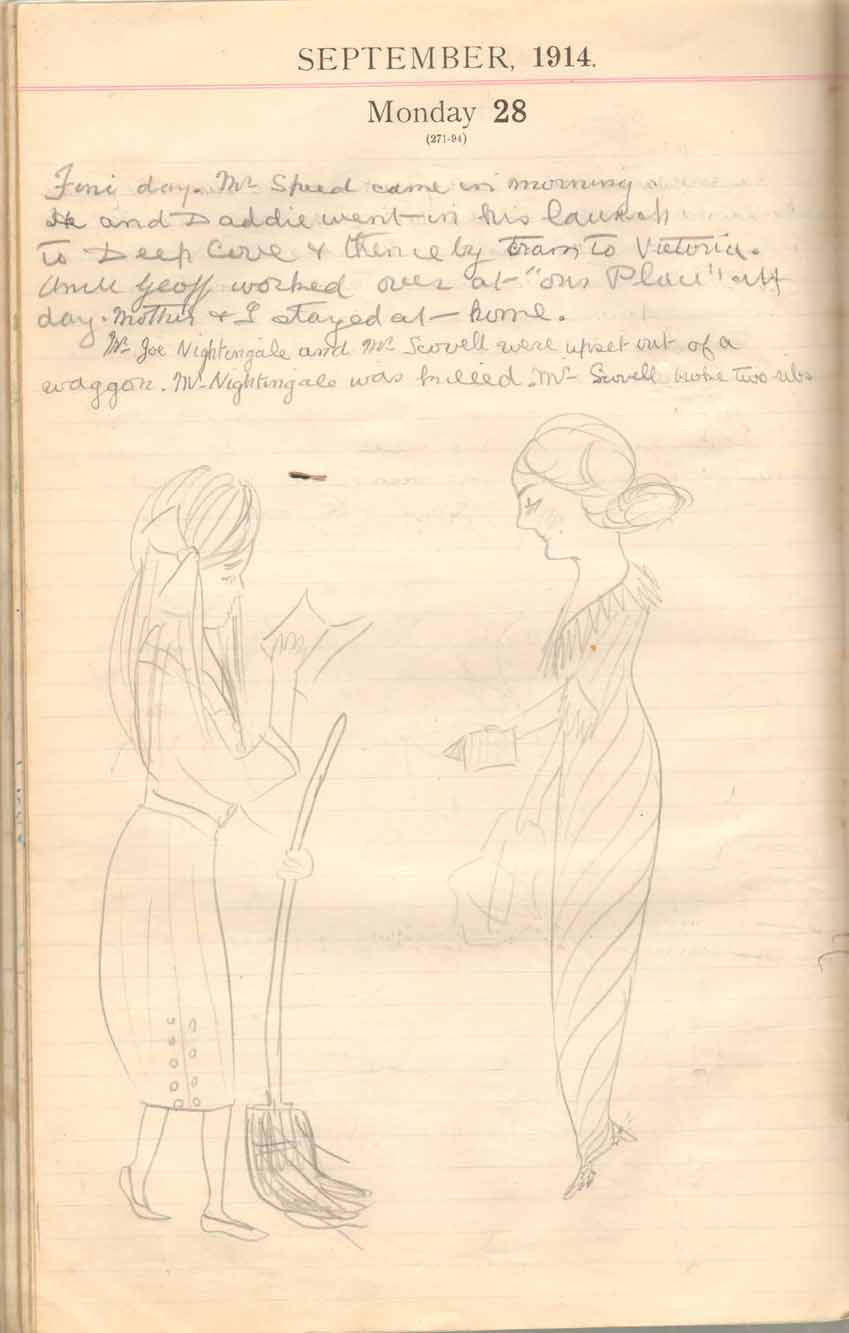 SEPTEMBER, 1914.
Monday 28
(271-94)
Fine day. Mr Speed came in morning
He and Daddie went in his launch
to Deep Cove & thence by tram to Victoria.
Uncle Geoff worked over at "our Place" all
day. Mother & I stayed at home.
Mr Joe Nightingale and Mr Scovell were upset out of a
waggon. Mr Nightingale was killed. Mr Scovell broke two ribs